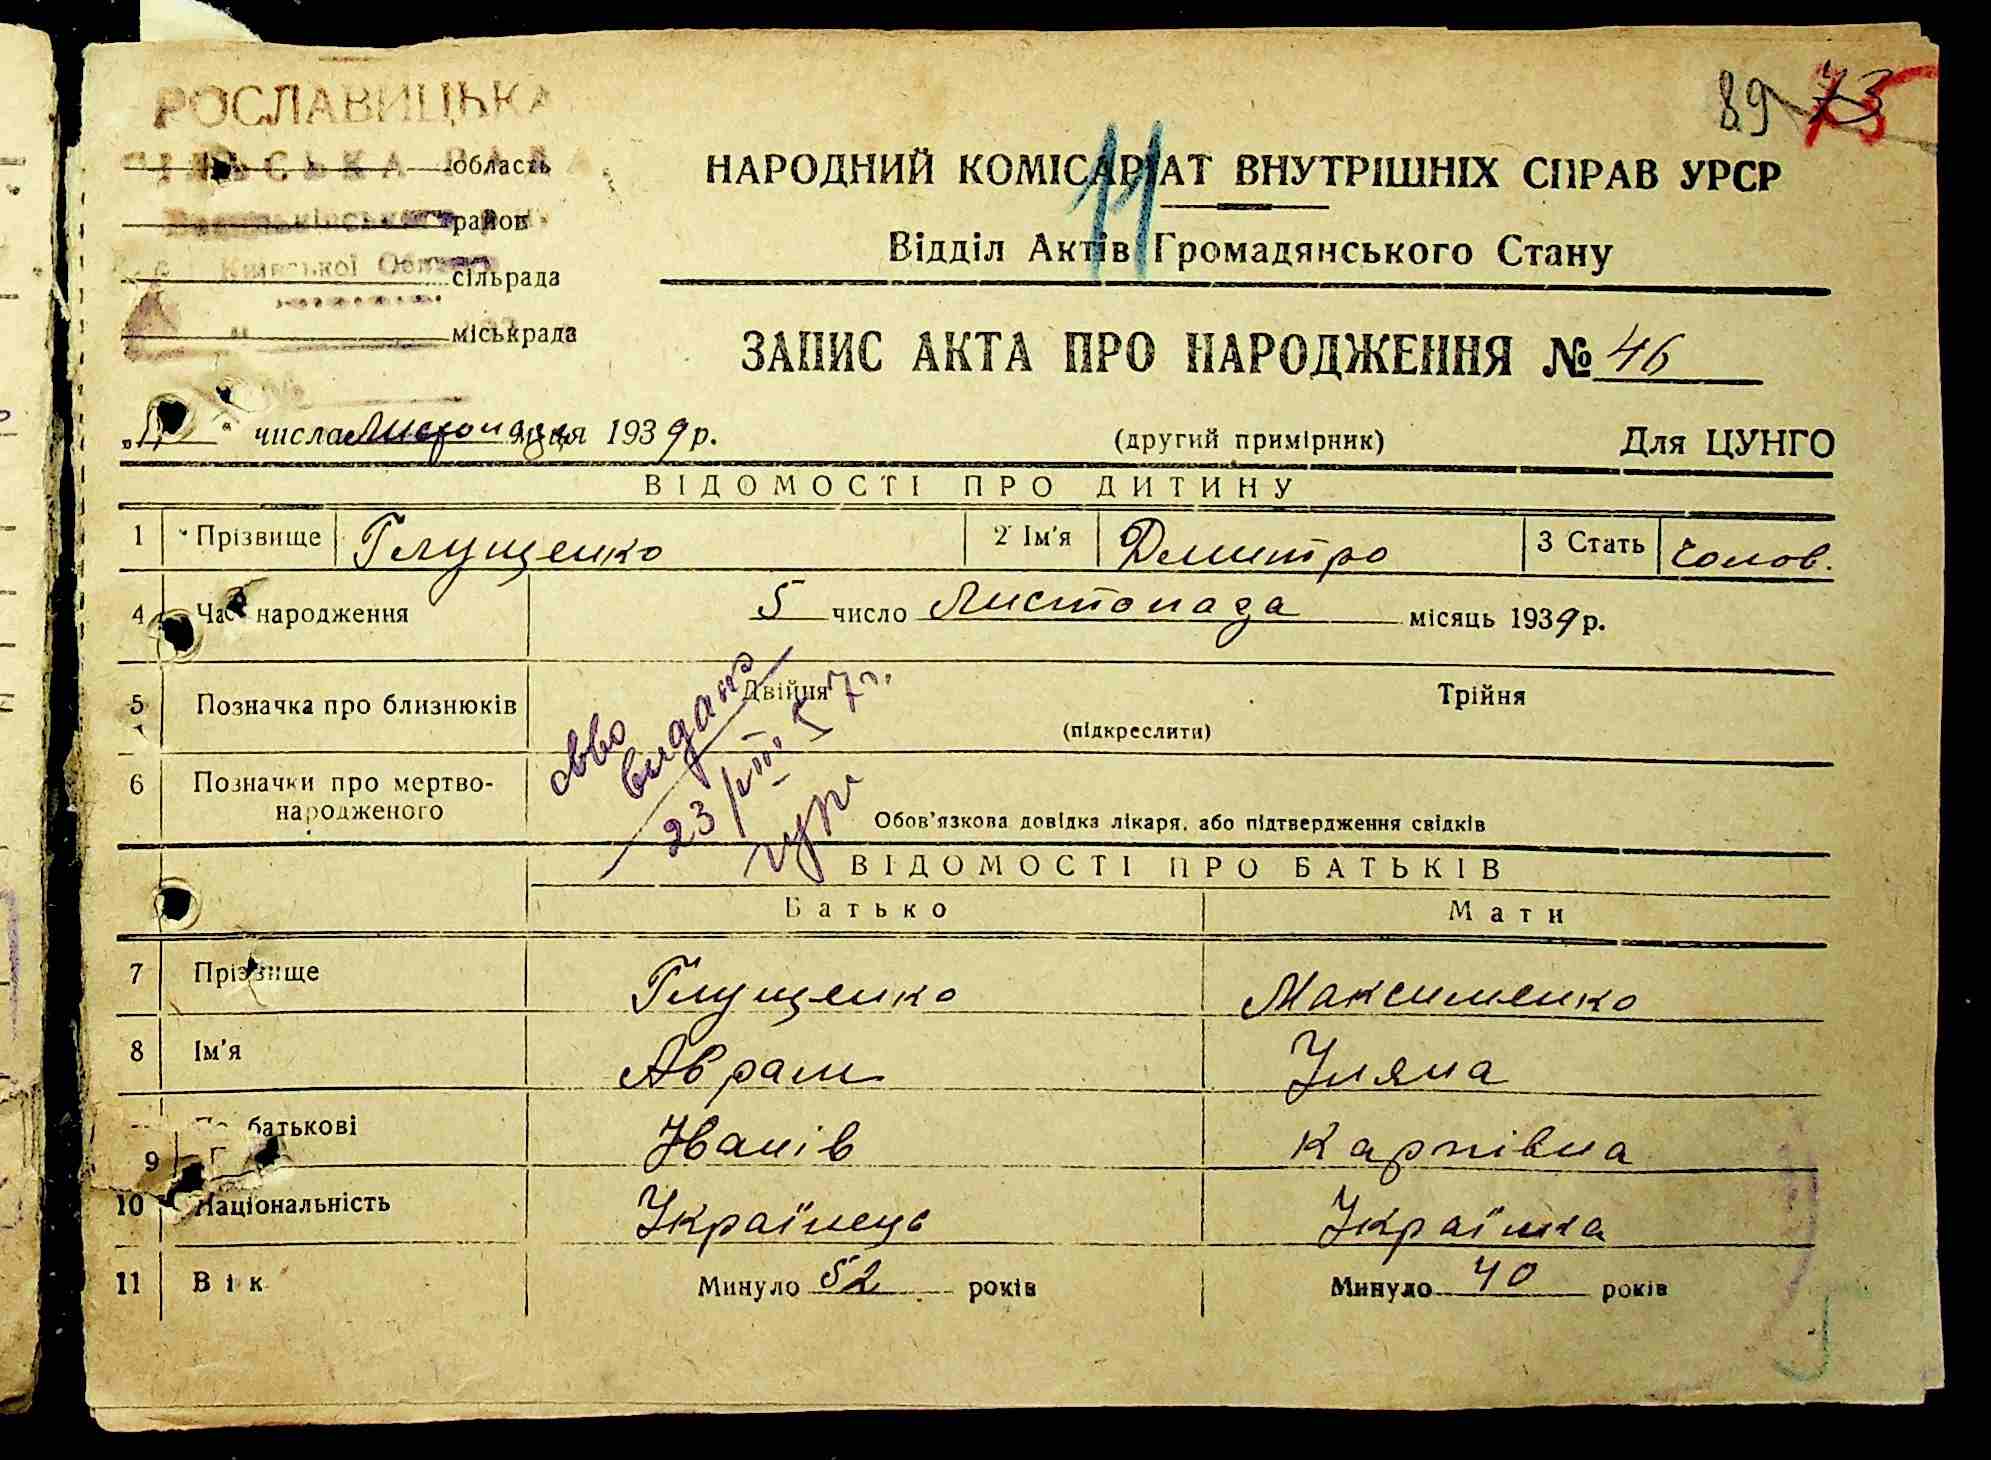 89 73 75
РОСЛАВИЦЬКА
СІЛЬСЬКА РАДА
область
район
Київської Області
сільрада
міськрада
11
НАРОДНИЙ КОМІСАРІАТ ВНУТРІШНІХ СПРАВ УРСР
Відділ Актів Громадянського Стану
ЗАПИС АКТА ПРО НАРОДЖЕННЯ № 46
числа Листопада м-ця 1939 р.
(другий примірник)
Для ЦУНГО
ВІДОМОСТІ ПРО ДИТИНУ
1 Прізвище Глущенко 2 Ім'я Дмитро 3 Стать чолов.
4 Час народження 5 число Листопада місяць 1939 р.
5 Позначка про близнюків Двійня Трійня
(підкреслити)
видано
23/VIII 57 г.
6 Позначки про мертво-
народженого
Обов'язкова довідка лікаря, або підтвердження свідків
ВІДОМОСТІ ПРО БАТЬКІВ
Батько Мати
7 Прізвище Глущенко Максименко
8 Ім'я Аврам Уляна
9 По батькові Іванів Карпівна
10 Національність Українець Українка
11 Вік Минуло 52 років Минуло 40 років